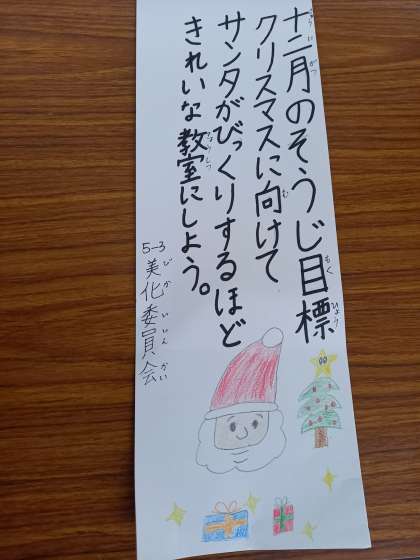 十二月のそうじ目標
クリスマスに向けて
サンタがびっくりするほど
きれいな教室にしよう。
5-3 美化委員会